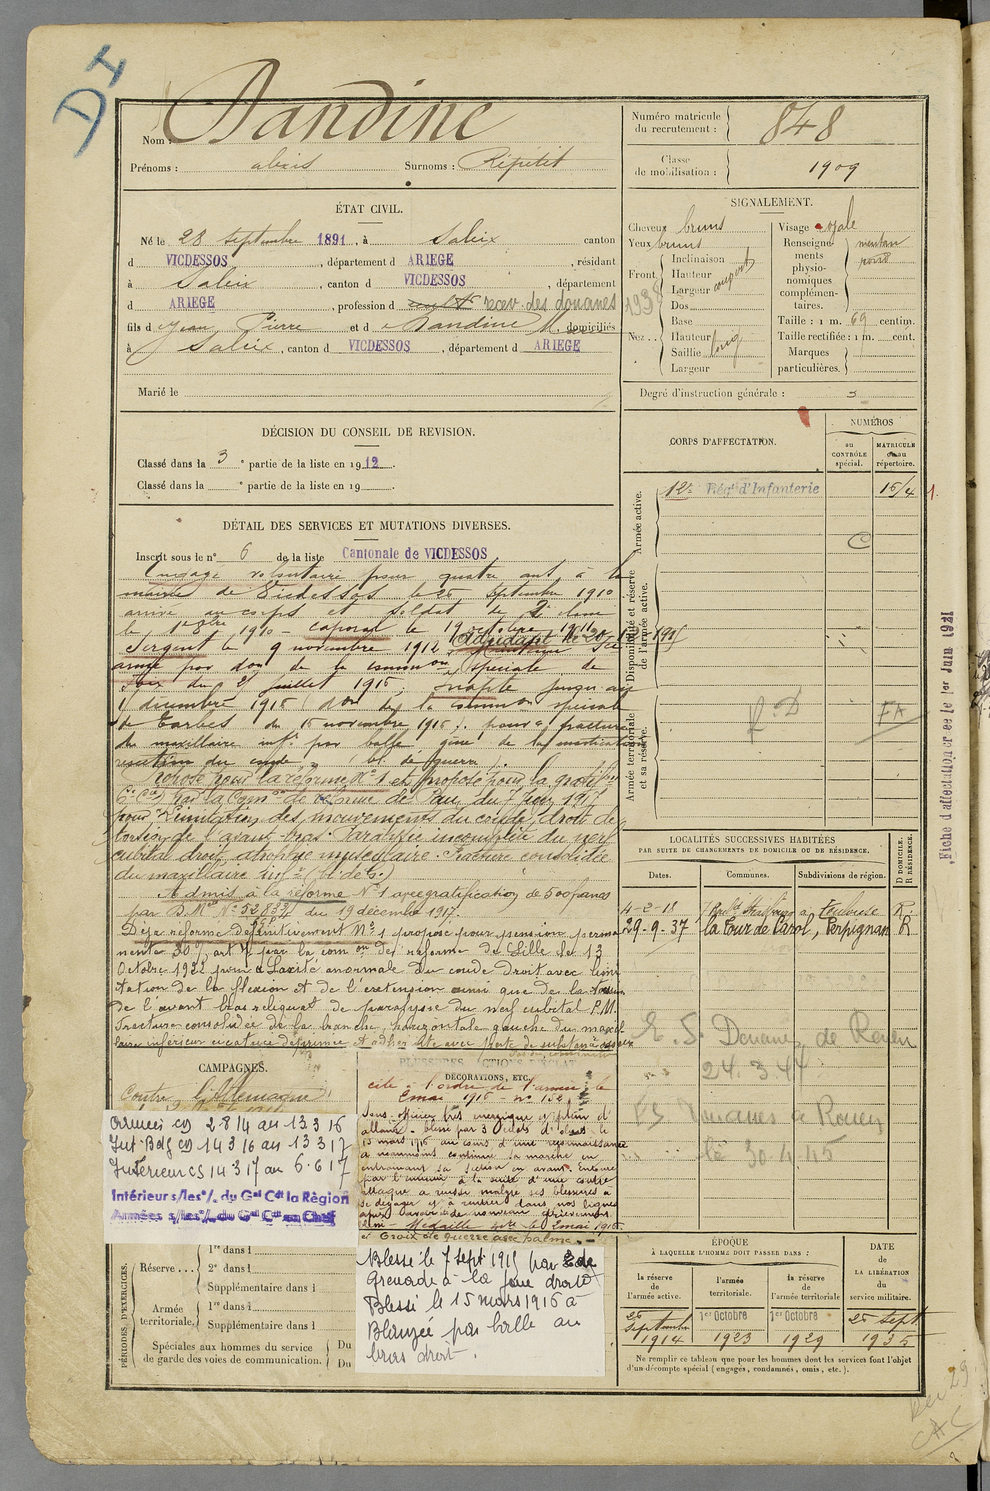 DI
Nom : Dandine
Prénoms : alexis Surnoms : Répétit
Numéro matricule du recrutement : 848
Classe de mobilisation : 1909
ÉTAT CIVIL.
Né le 28 septembre 1891, à Saleix canton
d VICDESSOS, département d ARIEGE, résidant
à Saleix, canton d VICDESSOS, département
d ARIEGE, profession d recev. des douanes 1938
fils d Jean Pierre et d Dandine M. domiciliés
à Saleix, canton d VICDESSOS, département d ARIEGE
Marié le
SIGNALEMENT.
Cheveux bruns
Yeux bruns
Front
Inclinaison
Hauteur
Largeur
Nez
Dos
Base
Hauteur
Saillie long
Largeur
Visage ovale
Renseignements physionomiques complémentaires. menton
Taille : 1 m. 69 centim.
Taille rectifiée : 1 m. cent.
Marques particulières.
Degré d'instruction générale : 3
DÉCISION DU CONSEIL DE REVISION.
Classé dans la 3e partie de la liste en 1912.
Classé dans la e partie de la liste en 19
CORPS D'AFFECTATION.
NUMÉROS
au CONTRÔLE spécial.
MATRICULE ou au répertoire.
Armée active.
12e Régt d'Infanterie
Disponibilité et réserve de l'armée active.
Armée territoriale et sa réserve.
DÉTAIL DES SERVICES ET MUTATIONS DIVERSES.
Inscrit sous le n° 6 de la liste Cantonale de VICDESSOS
Engagé volontaire pour quatre ans à la
mairie de Vicdessos le 25 septembre 1910
arrivé au corps et soldat de 2e classe
le 1er 8bre 1910 - caporal le 19 octobre 1911
Sergent le 9 novembre 1912
armée par don de la common spéciale de
Foix du 2 juillet 1915, inapte jusqu'au
décembre 1915 (don de la common spéciale
de Tarbes du 15 novembre 1915) pour fracture
du maxillaire inf. par balle gêne de la mastication
du coude (bl. de guerre)
Proposé pour la réforme N° 1 et proposé pour la gratif.on
par la Comon de réforme de Pau du 7 Juin 1917
pour limitation des mouvements du coude droit de
torsion de l'avant bras. Paralysie incomplète du nerf
cubital droit, atrophie musculaire. Fracture consolidée
du maxillaire inf. (bl. de G.)
Admis à la réforme N° 1 avec gratification de 500 francs
par D.M. N° 52.833 du 19 décembre 1917.
Déjà réformé définitivement N° 1 proposé pour pension perma
nente 30% par la comon de réforme de Lille du 13
Octobre 1922 pour Laxité anormale du coude droit avec limi
tation de la flexion et de l'extension ainsi que de la torsion
de l'avant bras reliquat de paralysie du nerf cubital P.M.
Fracture consolidée de la branche horizontale gauche du maxil
laire inférieur cicatrice déprimée et adhérente avec perte de substance
Fiche d'affectation créée le 1er Juin 1921
LOCALITÉS SUCCESSIVES HABITÉES
PAR SUITE DE CHANGEMENTS DE DOMICILE OU DE RÉSIDENCE.
Dates. Communes. Subdivisions de région. D DOMICILE. R RÉSIDENCE.
4-2-18 Toulouse R.
29-9-37 la Tour de Carol, Perpignan R
E. S. Douanes de Rouen
24.3.44
ES Douanes à Rouen
le 30.4.45
CAMPAGNES.
Contre l'Allemagne
Armées CS 2 8 14 au 13 3 16
Int Bdg CS 14 3 16 au 13 3 17
Intérieur CS 14 3 17 au 6 6 17
Intérieur s/les°/. du Gal Cdt la Règion
Armées s/les°/. du Gal Cdt en Chef
DÉCORATIONS, ETC.
cité à l'ordre de l'armée le
2 mai 1916 - n° 152
Sous-officier très énergique et plein d'
allant. blessé par 3 éclats d'obus le
15 mars 1916 au cours d'une reconnaissance
a néanmoins continué la marche en
entrainant sa section en avant. Entouré
par l'ennemi à la suite d'une contre
attaque a réussi malgré ses blessures à
se dégager et à rentrer dans nos lignes
après avoir été de nouveau grièvement
atteint - Médaille mre le 2 mai 1916
et Croix de guerre avec palme. -
Blessé le 7 sept 1915 par
Grenade à la joue droite
Blessé le 15 mars 1916 à
Blanzée par balle au
bras droit.
PÉRIODES D'EXERCICES.
Réserve
1re dans l
2e dans l
Supplémentaire dans l
Armée territoriale.
1re dans l
Supplémentaire dans l
Spéciales aux hommes du service de garde des voies de communication.
Du
Du
ÉPOQUE
À LAQUELLE L'HOMME DOIT PASSER DANS :
la réserve de l'armée active.
l'armée territoriale.
la réserve de l'armée territoriale
DATE de LA LIBÉRATION du service militaire.
25 septembre 1914
1er Octobre 1923
1er Octobre 1929
25 sept 1935
Ne remplir ce tableau que pour les hommes dont les services font l'objet
d'un décompte spécial (engagés, condamnés, omis, etc.).